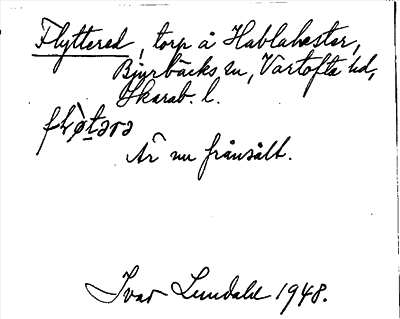 Flyttered, torp å Hablahester,
Bjurbäcks sn, Vartofta hd,
Skarab. l.
Är nu frånsålt.
Ivar Lundahl 1948.